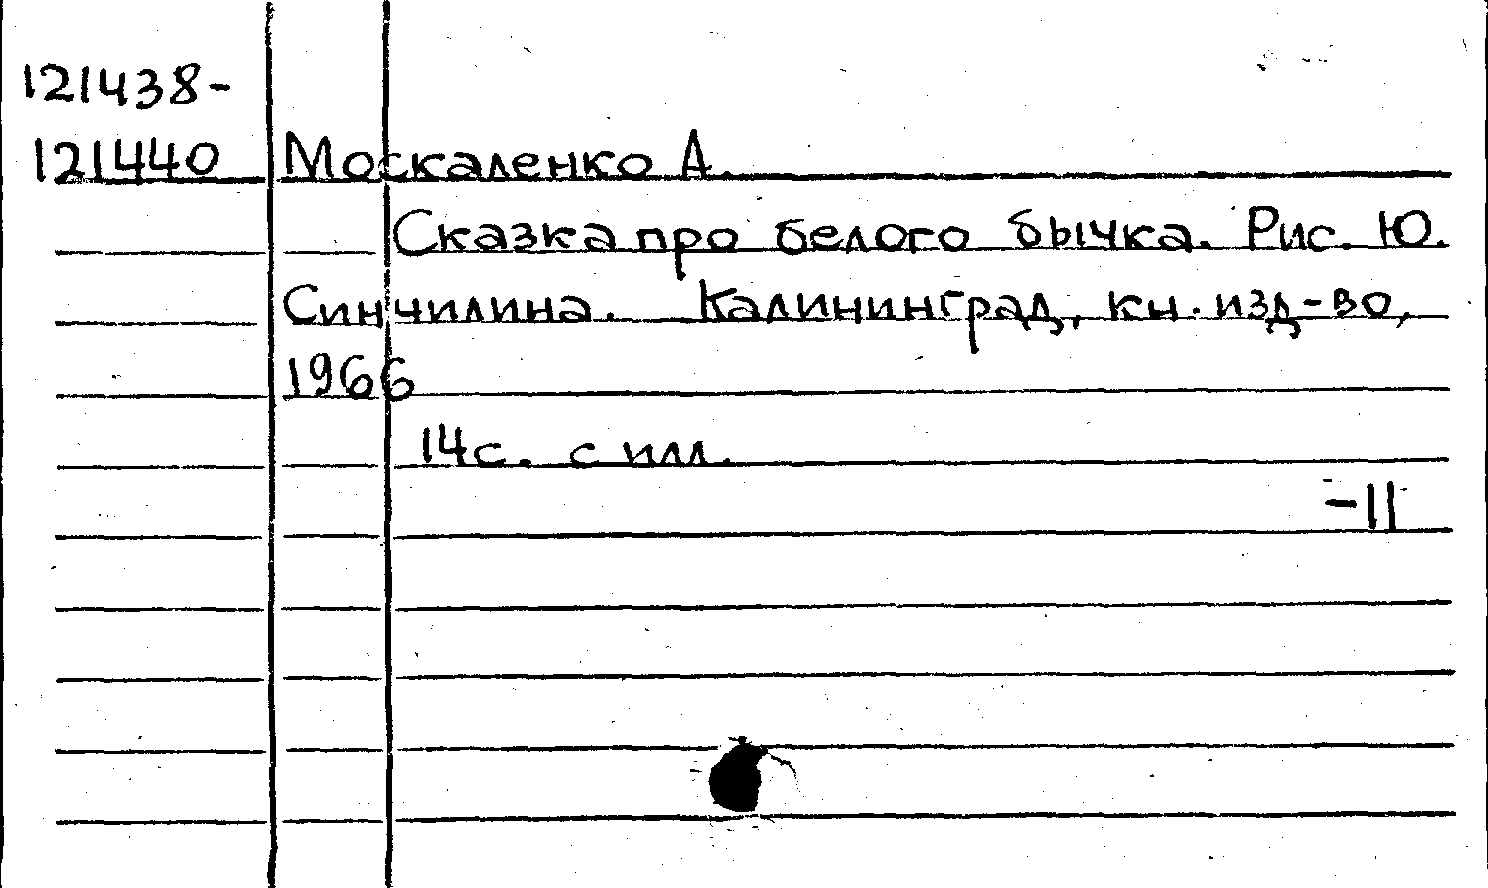 121438-
121440 Москаленко А.
Сказка про белого бычка. Рис. Ю.
Синчилина. Калининград, кн. изд-во,
1966
14с. с илл.
-11